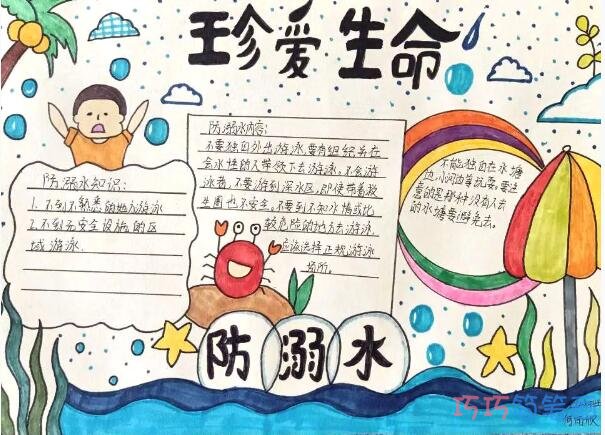 珍爱生命
防溺水知识:
1.不到不熟悉的地方游泳
2.不到无安全设施的区
域游泳.
防溺水内容:
不要独自外出游泳,要有组织并在
会水性的人带领下去游泳,不会游
泳者,不要游到深水区,即使带着救
生圈也不安全,不要到不知水情或比
较危险的地方去游泳.
应该选择正规游泳
场所。
不能独自在水塘
边,小河边等玩耍,要注
意的是那种没有人去
的水塘要避免去。
防溺水
巧巧简笔